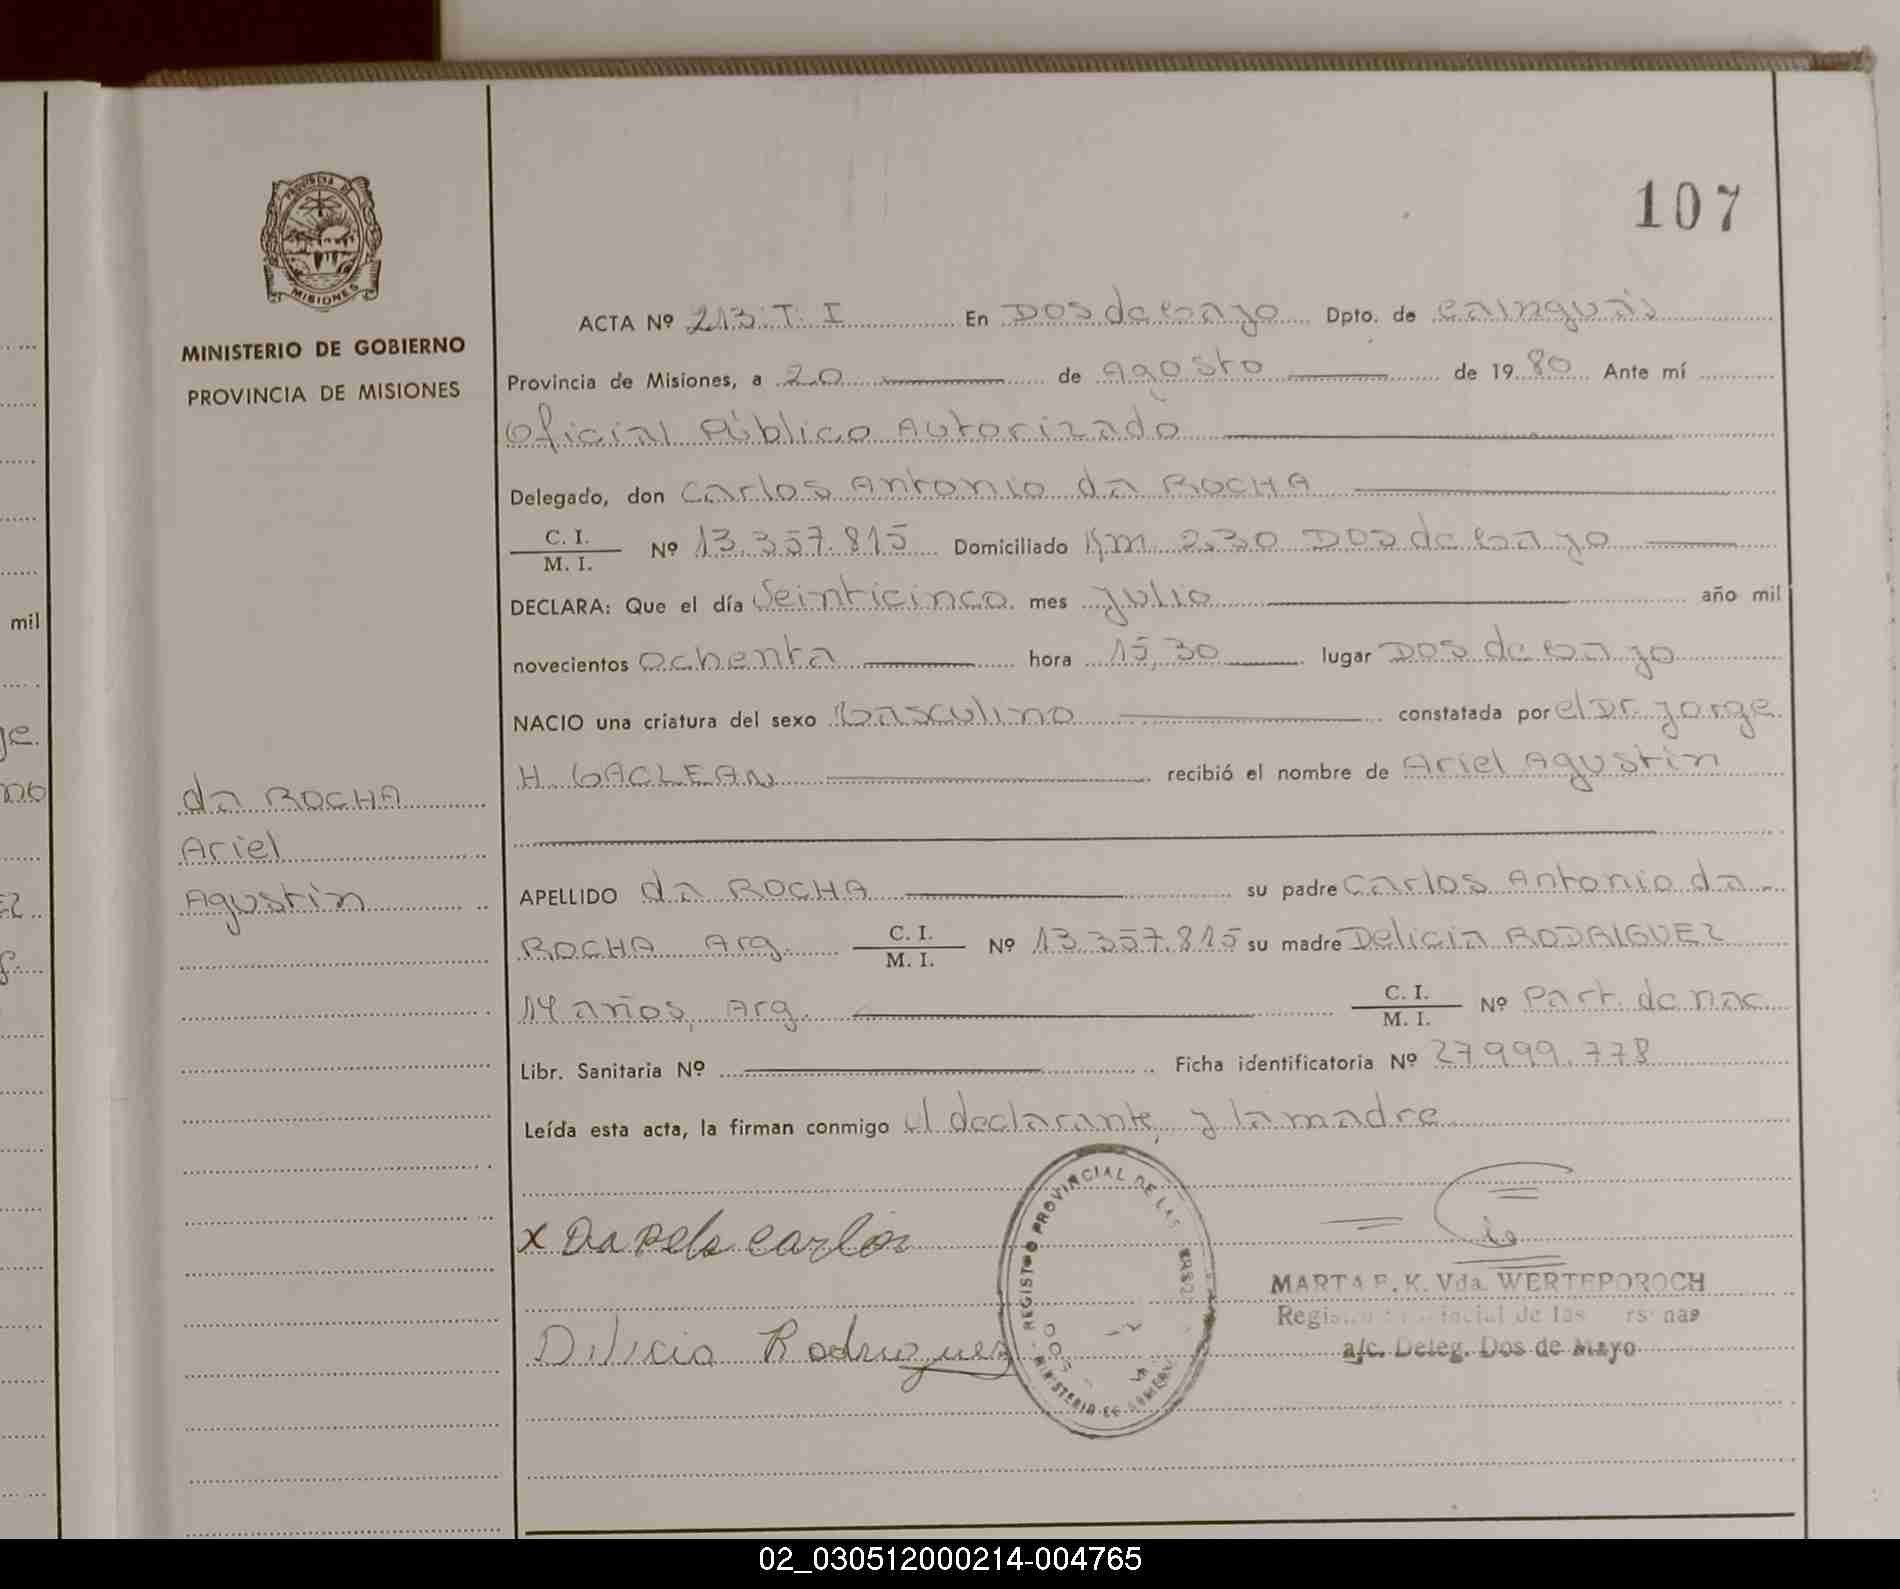 107
PROVINCIA DE
MISIONES
MINISTERIO DE GOBIERNO
PROVINCIA DE MISIONES
da ROCHA
Ariel
Agustin
ACTA Nº 213 T. I En Dos de Mayo Dpto. de Cainguás
Provincia de Misiones, a 20 de Agosto de 1980 Ante mí
Oficial Público Autorizado
Delegado, don Carlos Antonio da ROCHA
C. I.
M. I. Nº 13.357.815 Domiciliado Km 230 Dos de Mayo
DECLARA: Que el día Veinticinco mes Julio año mil
novecientos Ochenta hora 15,30 lugar Dos de Mayo
NACIO una criatura del sexo Masculino constatada por el Dr. Jorge
H. MACLEAN recibió el nombre de Ariel Agustin
APELLIDO da ROCHA su padre Carlos Antonio da
ROCHA Arg. C. I.
M. I. Nº 13.357.815 su madre Delicia RODRIGUEZ
14 años, Arg. C. I.
M. I. Nº Part. de nac.
Libr. Sanitaria Nº Ficha identificatoria Nº 27.999.778
Leída esta acta, la firman conmigo el declarante, y la madre
x Da carlos
Dilicia Rodriguez
REGISTRO PROVINCIAL DE LAS
MINISTERIO DE
MARTA E. K. Vda. WERTEPOROCH
a/c. Deleg. Dos de Mayo
mil
02_030512000214-004765